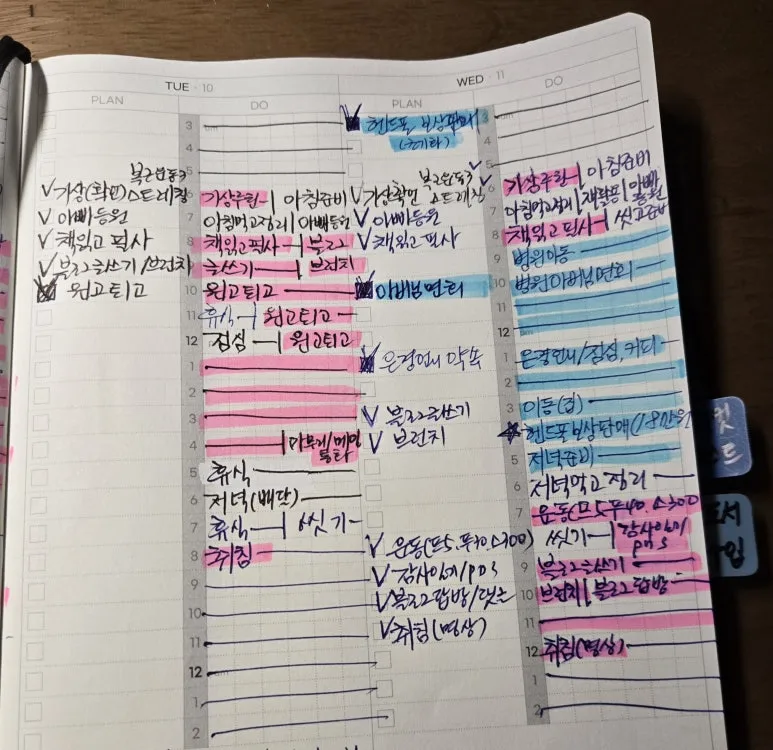 TUE · 10
PLAN
DO
복근운동3
기상(확언)스트레칭
아빠등원
책읽고 필사
블로그글쓰기/브런치
원고퇴고
3
4
5
6 기상확언 | 아침준비
7 아침먹고정리 | 아빠등원
8 책읽고필사 | 블로그
9 글쓰기 | 브런치
10 원고퇴고
11 휴식 | 원고퇴고
12 점심 | 원고퇴고
1
2
3
4 마무리/메일
5 휴식
6 저녁(배달)
7 휴식 | 씻기
8 취침
9
10
11
12
1
2
WED · 11
PLAN
DO
핸드폰 보상판매
(초기화)
복근운동3
기상확언 스트레칭
아빠등원
책읽고 필사
아버님면회
은경언니 약속
블로그글쓰기
브런치
운동(프5.푸40.스300)
감사일기/pds
블로그답방/댓글
취침(명상)
3
4
5
6 기상확언 | 아침준비
7 아침먹고정리 | 아빠
8 책읽고필사 | 씻고준비
9 병원이동
10 병원아버님면회
11
12
1 은경언니/점심,커피
2
3 이동(집)
4 핸드폰보상판매(18만원
5 저녁준비
6 저녁먹고정리
7 운동(프5푸40.스300
8 씻기 | 감사일기
pds
9 블로그글쓰기
10 브런치 | 블로그답방
11
12 취침(명상)
1
2